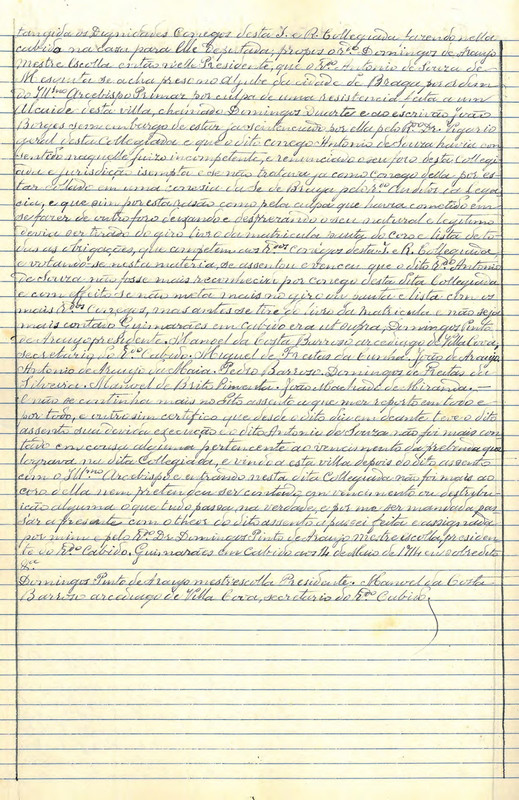 tangida os Dignidades Conegos desta I. e R. Collegiada fazendo nella
cabido na casa para elle deputada; propos o R.do Domingos de Araujo
Mestre Escolla então nelle Presidente, que o R.do Antonio de Souza de
Mesquita se acha preso no Aljube da cidade de Braga por ordem
do Ill.mo Arcebispo Primaz por culpa de uma resistencia feita a um
Alcaide desta villa, chamado Domingos Duarte e ao escrivão João
Borges sem embargo de estar ja sentenciado por ella pelo R.do Dr. Vigario
geral desta Collegiada e que o dito conego Antonio de Souza havia con
sentido naquelle juizo incompetente, e renunciado o seu foro desta Collegi
ada e jurisdição isempta e se não tratara ja como Conego della por es
tar collado em uma conesia da Sé de Braga pelo R.do Auditor da Lega
cia, e que sim por esta rasão como pela culpa que havia cometido em
se fazer de outro foro deixando e desprezando o seu natural e legitimo
devia ser tirado do giro livro da matricula meza, do coro e lista de to
das as obrigações, que competem aos R.dos Conigos desta I. e R. Collegiada,
e votando-se nesta materia, se assentou e venceu que o dito R.do Antonio
de Souza não fosse mais reconhecido por conego desta dita Collegiada
e com effeito se não metta mais no giro da pauta e lista com os
mais R.dos Conegos, mas antes se tire do livro da Matricula e não seja
mais contado. Guimarães em Cabido era ut supra, Domingos Pinto
de Araujo presidente. Manoel da Costa Barroso arcediago de Villa Cova,
secretario do R.do Cabido. Miguel de Freitas da Cunha. João de Araujo
Antonio de Araujo da Maia. Pedro Barroso. Domingos de Freitas da
Silveira. Manoel de Brito Pimenta. João Machado de Miranda. —
E não se continha mais no dito assento a que me reporto em todo e
por todo, e outro sim certifico que desde o dito dia em deante teve o dito
assento sua devida execução e o dito Antonio de Souza não foi mais con
tado em cousa alguma pertencente ao vencimento da prebenda que
lograva na dita Collegiada, e vindo a esta villa depois do dito assento
com o Ill.mo Arcebispo e entrando nesta dita Collegiada não foi mais ao
coro della nem pretendeu ser contado em vencimento ou destrebu
ição alguma o que tudo passa na verdade, e por me ser mandada pas
sar a presente com o theor do dito assento a passei feita e assignada
por mim e pelo R.do Dr. Domingos Pinto de Araujo mestre escolla, presiden
te do R.do Cabido. Guimarães em Cabido aos 14 de Maio de 1714 eu sobredito
&.ª
Domingos Pinto de Araujo mestrescolla Presidente. Manoel da Costa
Barroso arcediago de Villa Cova, secretario do R.do Cabido.